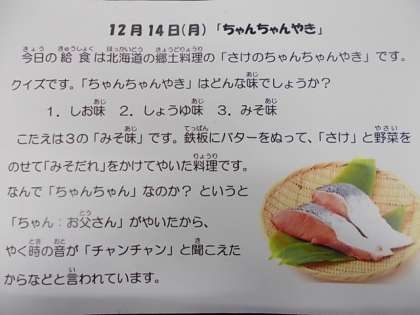 12月14日(月)「ちゃんちゃんやき」
今日の給食は北海道の郷土料理の「さけのちゃんちゃんやき」です。
クイズです。「ちゃんちゃんやき」はどんな味でしょうか?
1.しお味 2.しょうゆ味 3.みそ味
こたえは3の「みそ味」です。鉄板にバターをぬって、「さけ」と野菜を
のせて「みそだれ」をかけてやいた料理です。
なんで「ちゃんちゃん」なのか? というと
「ちゃん:お父さん」がやいたから、
やく時の音が「チャンチャン」と聞こえた
からなどと言われています。